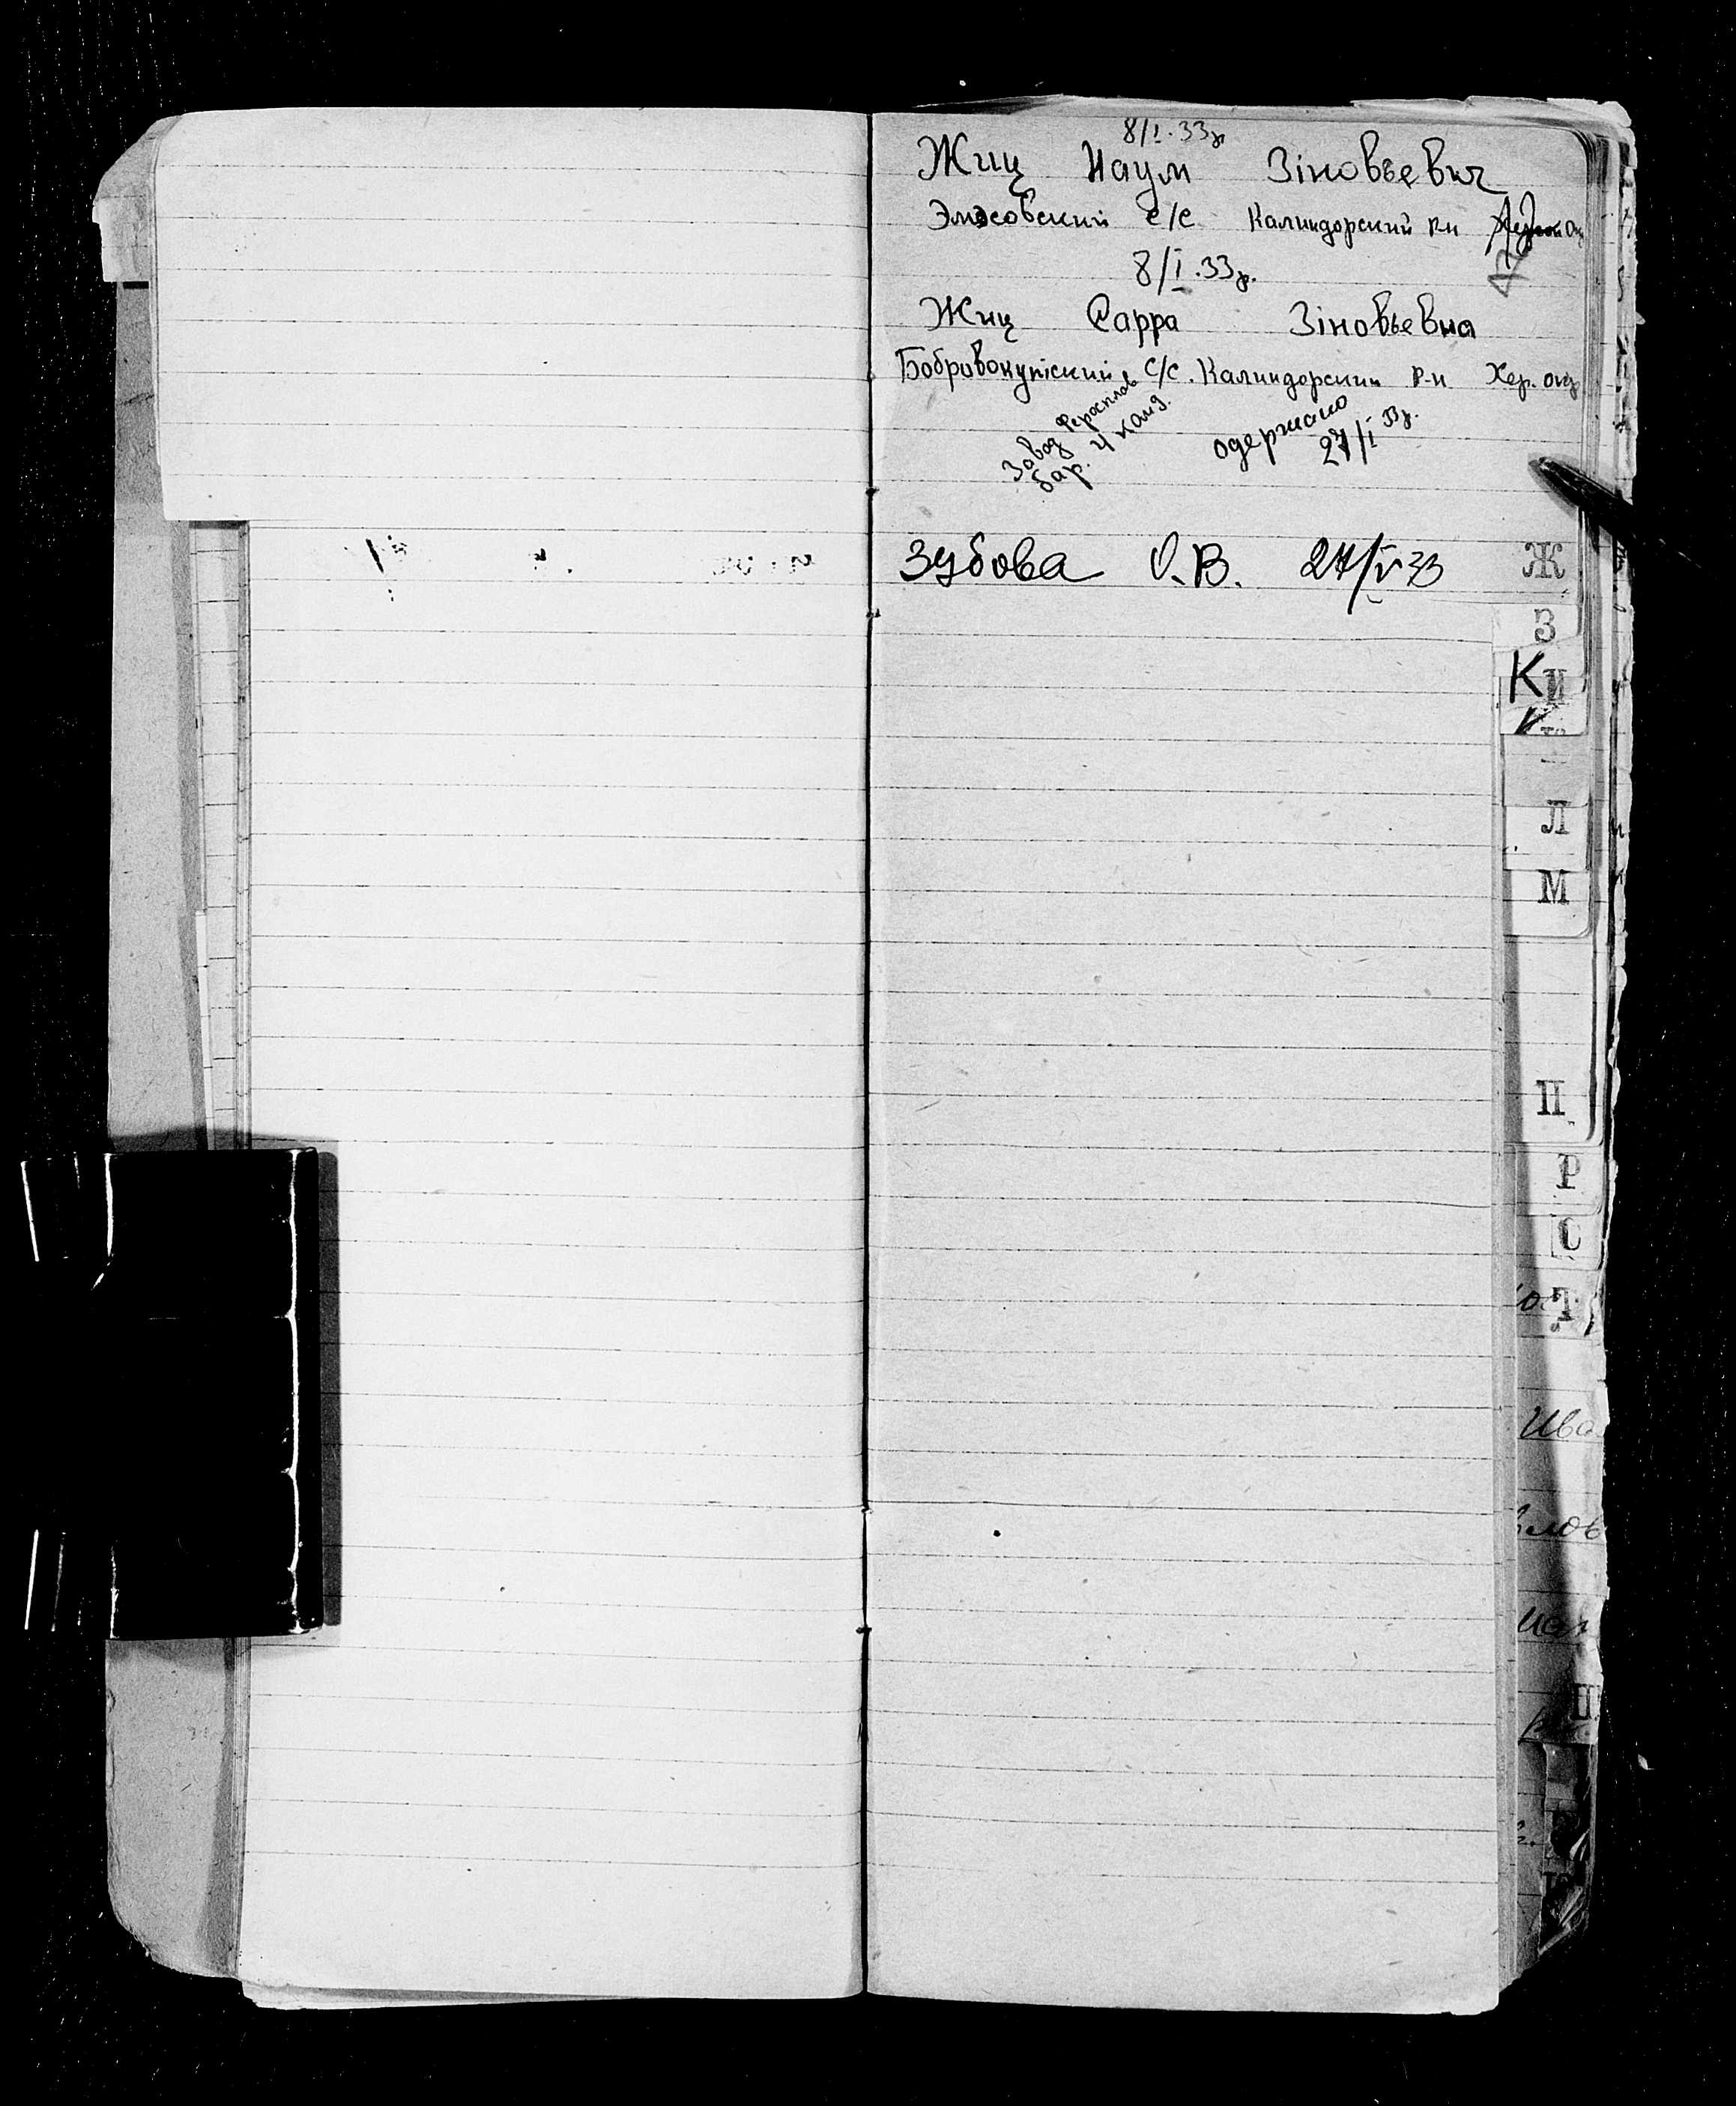 8/I.33р
Жиц Наум Зіновьевич
Эмесовский с/с Калиндорский р-н
8/I.33р.
Жиц Сарра Зіновьевна
Бобровокутский с/с. Калиндорский р-н Хер. окр
Завод
бар. 4 комд.
одержано
27/I 33р.
Зубова О.В. 27/IV 33
Ж
З
К И
Л
М
П
Р
С
Т
Ива